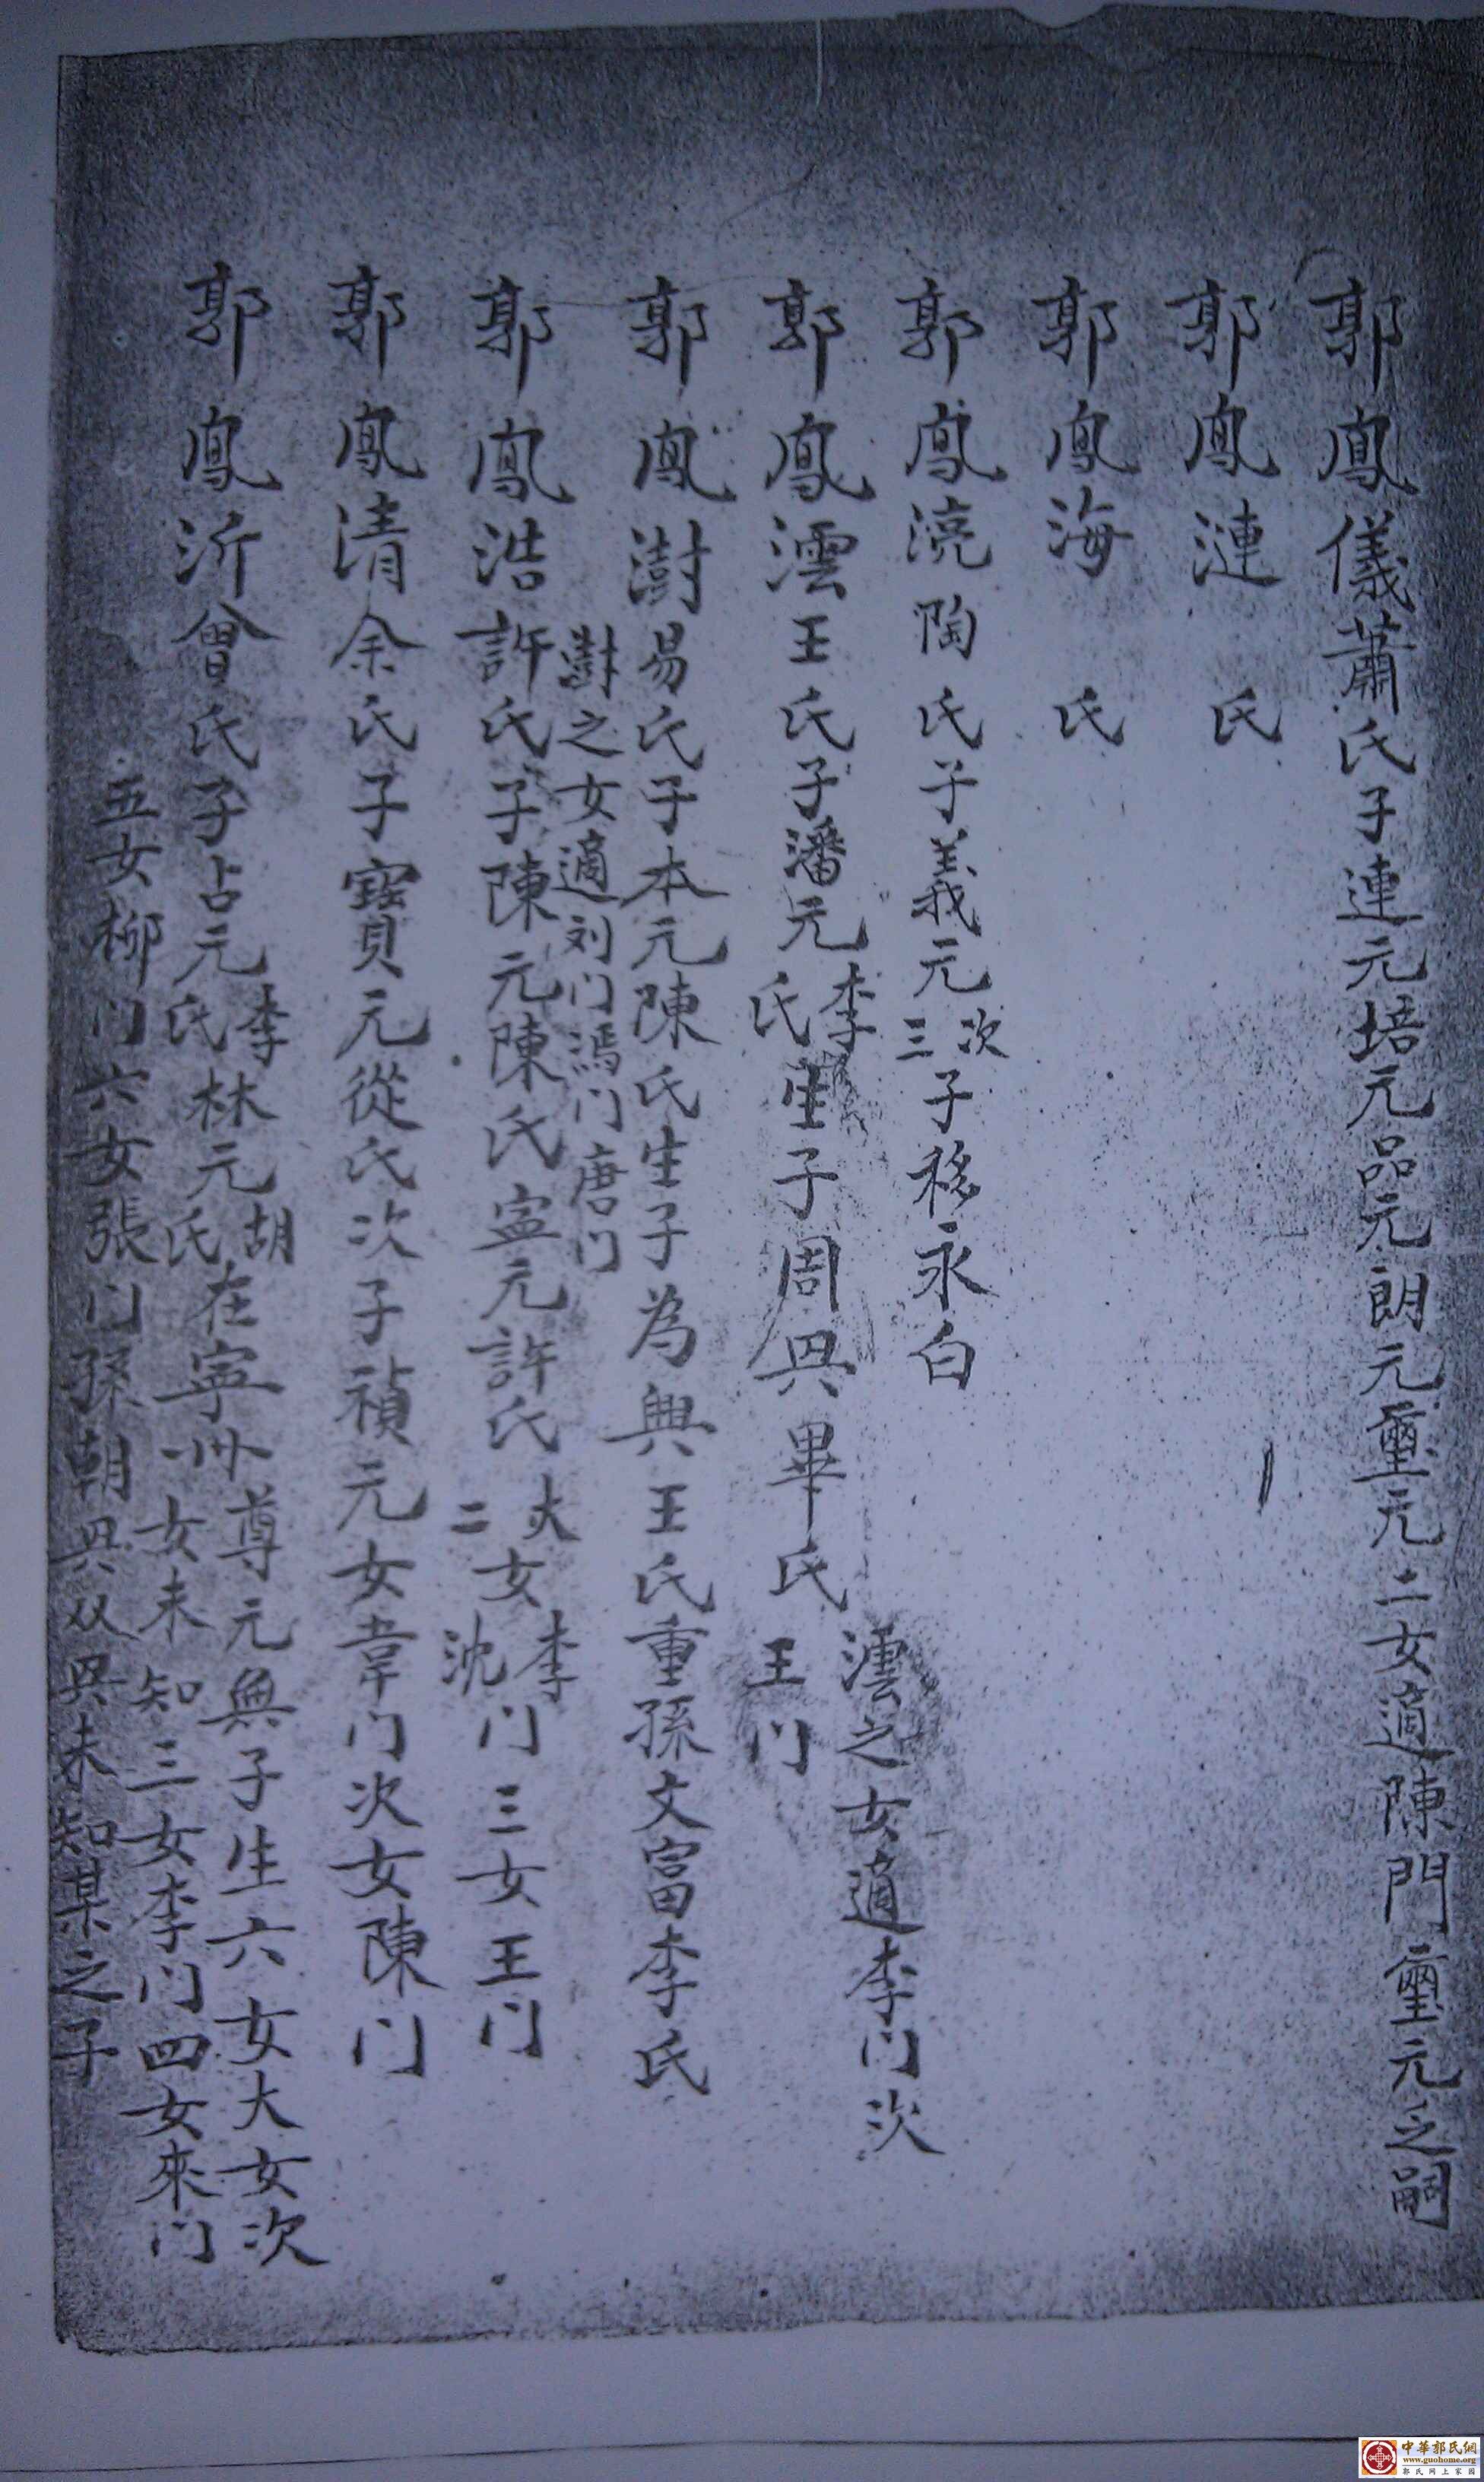 郭鳳儀蕭氏子連元培元品元朗元璽元二女適陳門璽元乏嗣
郭鳳漣 氏
郭鳳海 氏
郭鳳湸陶氏子義元次三子移永白
郭鳳澐王氏子潘元李氏生子周興畢氏
澐之女適李门次
王门
郭鳳澍易氏子本元陳氏生子為興王氏重孫文富李氏
澍之女適刘门馮门唐门
郭鳳浩許氏子陳元陳氏寍元許氏大二女李沈门三女王门
郭鳳清余氏子寶元從氏次子禎元女韋门次女陳门
郭鳳沂曾氏子占元李氏林元胡氏在寧州尊元無子生六女大女次
女未知三女李门四女來门
五女柳门六女張门孫朝興从興未知某之子
中華郭氏網
www.guohome.org
郭氏网上家園